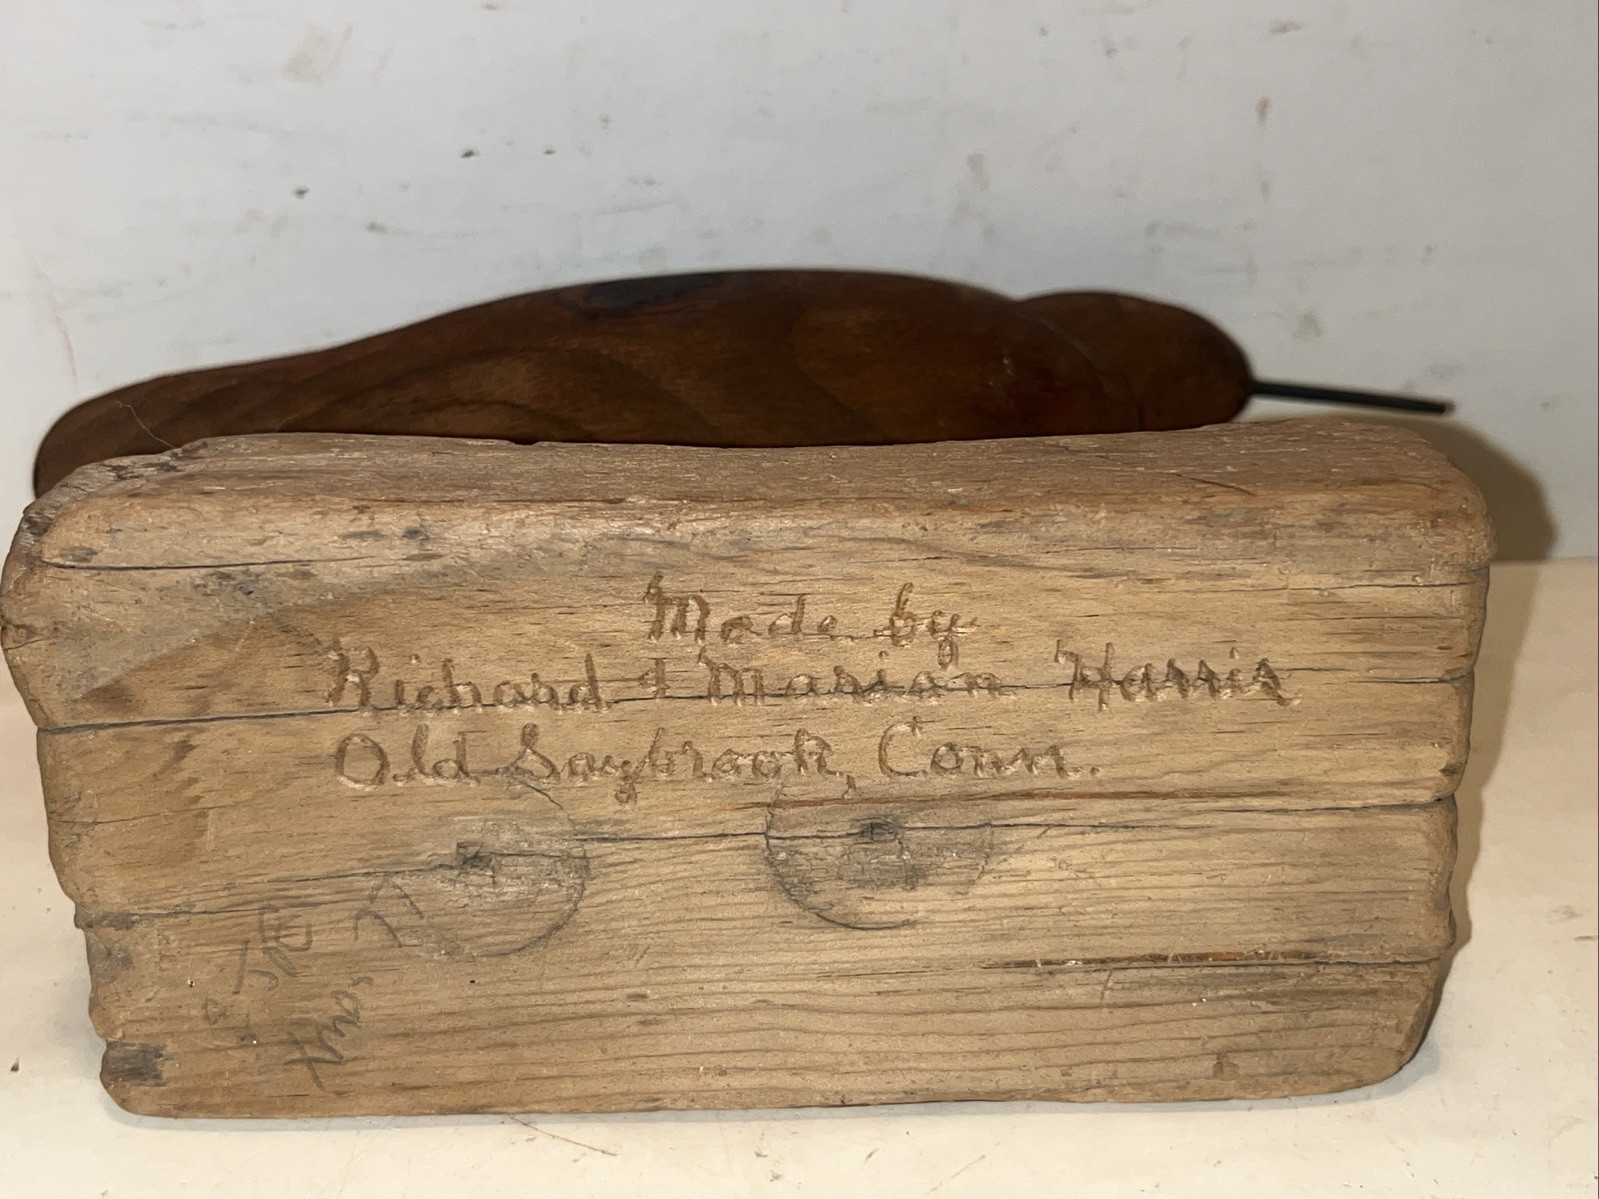 Made by
Richard & Marian Harris
Old Saybrook, Conn.
Xmas 77